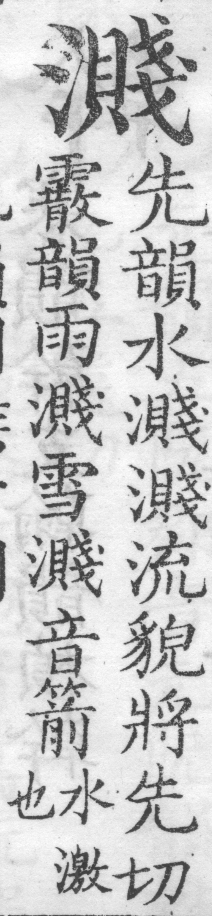 濺
先韻水濺濺流貌將先切
霰韻雨濺雪濺音箭水激
也